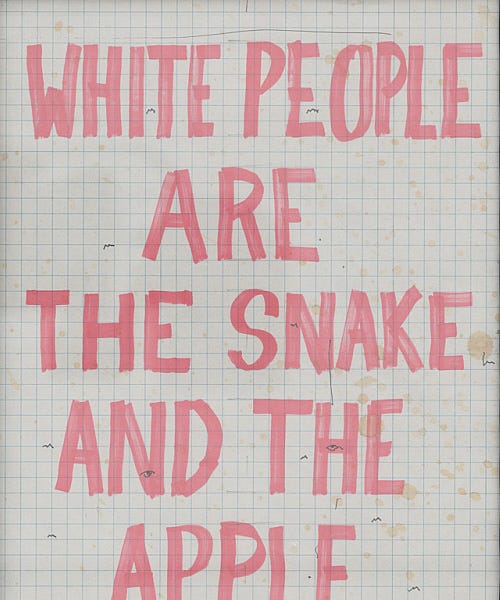 WHITE PEOPLE
ARE
THE SNAKE
AND THE
APPLE